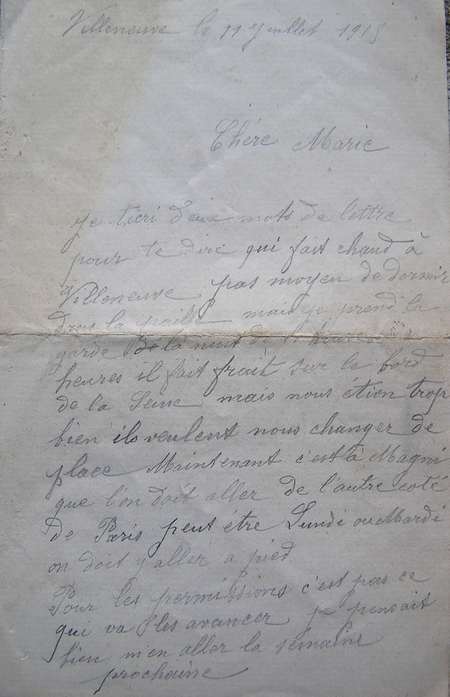 Villeneuve le 11 Juillet 1915
Chére Marie
Je tecri deux mots de lettre
pour te dire qui fait chaud à
Villeneuve pas moyen de dormir
dans la paille mais je prend la
garde de la nuit de
heures il fait frait sur le bord
de la Seine mais nous étion trop
bien ils veulent nous changer de
place Maintenant c'est à Magni
que l'on doit aller de l'autre coté
de Paris peut étre Lundi ou Mardi
on doit y aller a pied
Pour les permissions c'est pas ce
qui va les avancer je pensait
bien m'en aller la semaine
prochaine